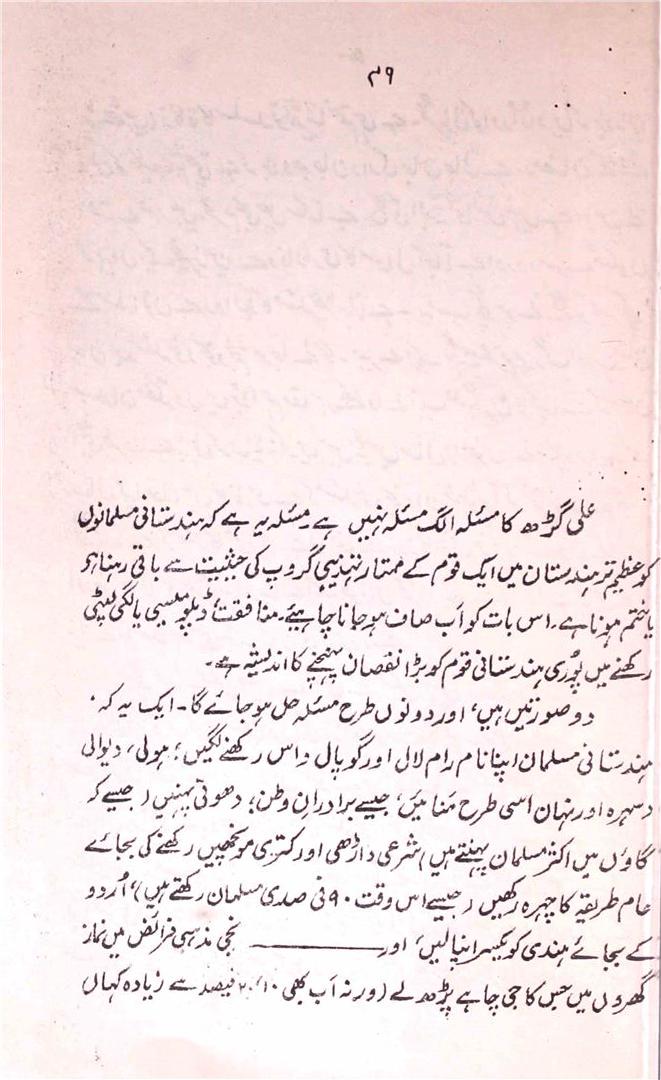 ۴۹
علی گڑھ کا مسئلہ الگ مسئلہ نہیں ہے۔ مسئلہ یہ ہے کہ ہندستانی مسلمانوں
کو عظیم تر ہندستان میں ایک قوم کے ممتاز تہذیبی گروپ کی حیثیت سے باقی رہنا ہو
یا ختم ہونا ہے۔ اس بات کو اَب صاف ہو جانا چاہیئے۔ منافقت، ڈپلومیسی یا لگی لپٹی
رکھنے میں پُوری ہندستانی قوم کو بڑا نقصان پہنچنے کا اندیشہ ہے۔
دو صورتیں ہیں، اور دونوں طرح مسئلہ حل ہو جائے گا۔ ایک یہ کہ
ہندستانی مسلمان اپنا نام رام لال اور گوپال داس رکھنے لگیں؛ ہولی، دیوالی
دسہرہ اور نہان اسی طرح مَنائیں، جیسے برادرانِ وطن؛ دھوتی پہنیں (جیسے کہ
گاؤں میں اکثر مسلمان پہنتے ہیں) شرعی داڑھی اور کتری مونچھیں رکھنے کی بجائے
عام طریقہ کا چہرہ رکھیں (جیسے اس وقت ۹۰ فی صدی مسلمان رکھتے ہیں)، اُردو
کے بجائے ہندی کو یکسر اپنا لیں، اور ـــــــــــــ نجی مذہبی فرائض میں نماز
گھروں میں جس کا جی چاہے پڑھ لے (ورنہ اَب بھی ۱۰، ۲۰ فیصد سے زیادہ کہاں